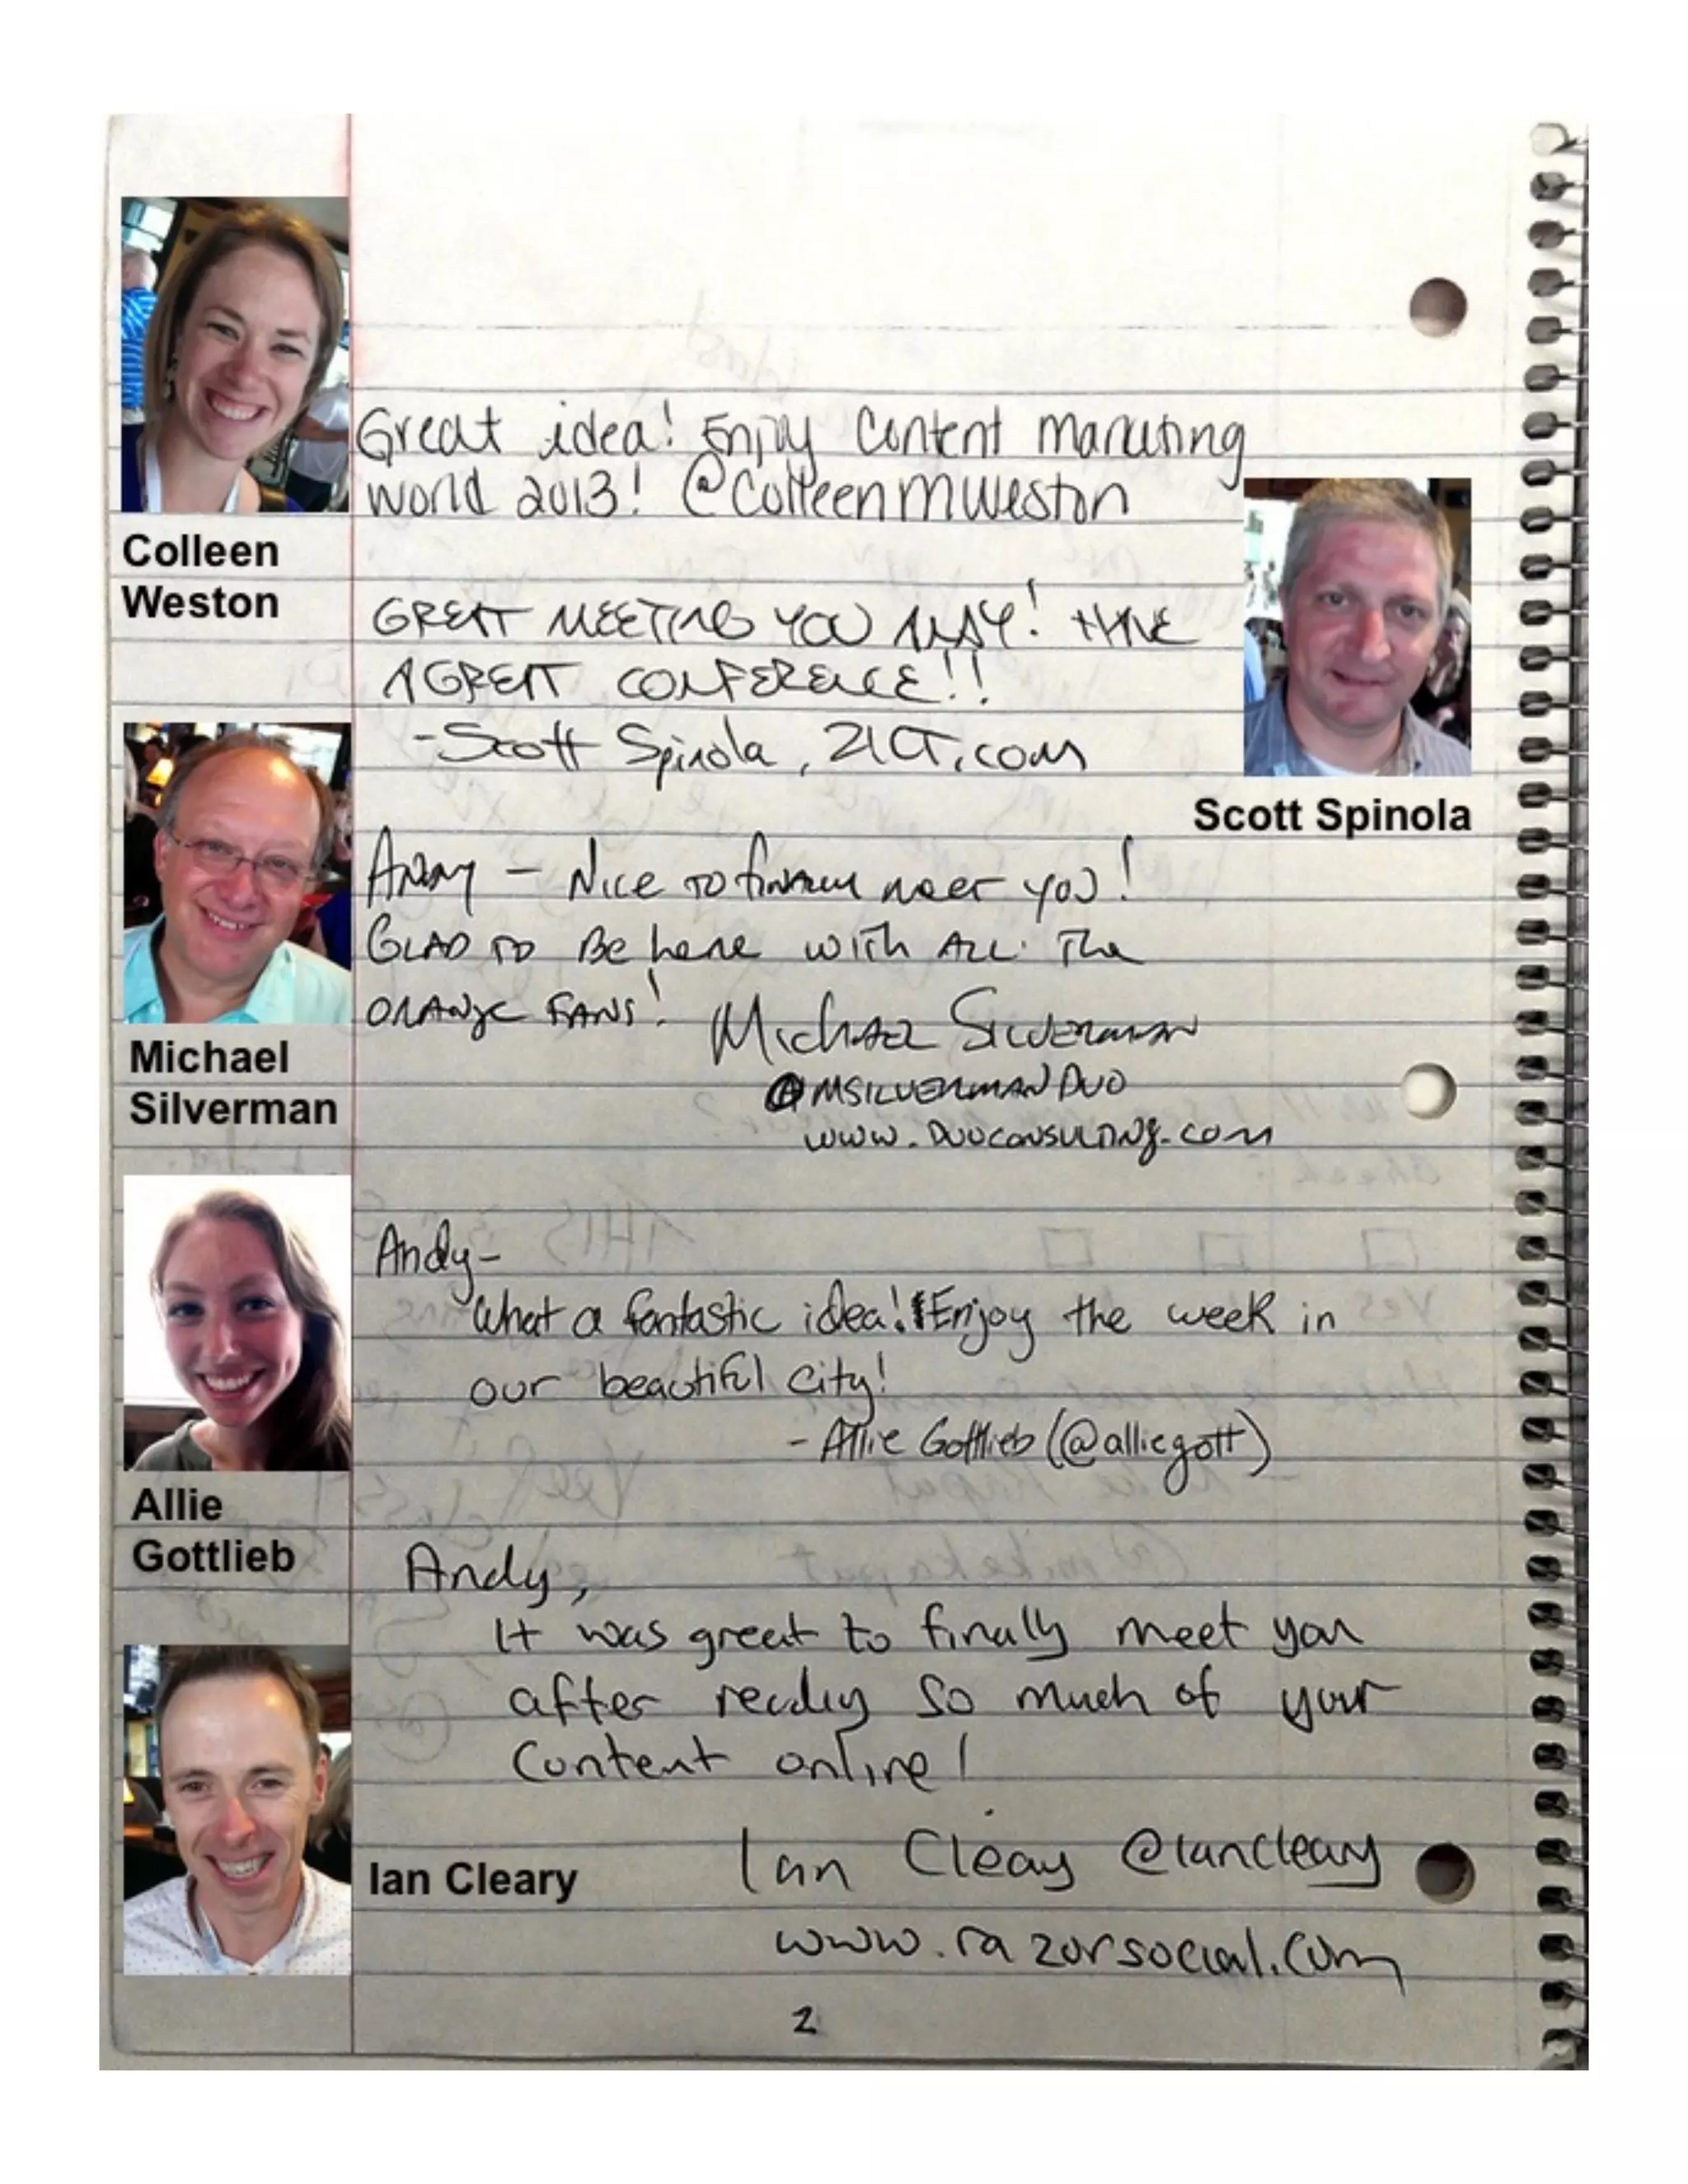 Great idea! Enjoy Content Marketing
World 2013! @ColleenMWeston
Colleen
Weston
GREAT MEETING YOU ANDY! HAVE
A GREAT CONFERENCE!!
-Scott Spinola, 21CT.com
Scott Spinola
ANDY - NICE TO FINALLY MEET YOU!
GLAD TO BE here WITH ALL The
ORANGE FANS! MICHAEL SILVERMAN
@MSILVERMANDUO
www.DUOCONSULTING.com
Michael
Silverman
Andy-
What a fantastic idea! Enjoy the week in
our beautiful city!
- Allie Gottlieb (@alliegott)
Allie
Gottlieb
Andy,
It was great to finally meet you
after reading so much of your
Content online!
Ian Cleary
Ian Cleary @IanCleary
www.razorsocial.com
2